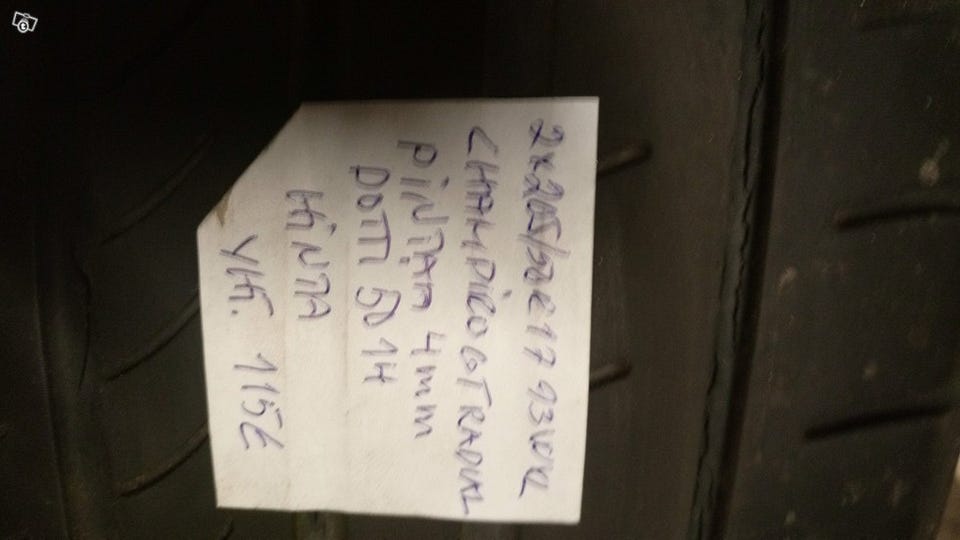 2x205/50R17 93WXL
CHAMPIRO GT RADIAL
PINTAA 4mm
DOTTI 5014
HINTA
YHT. 115€